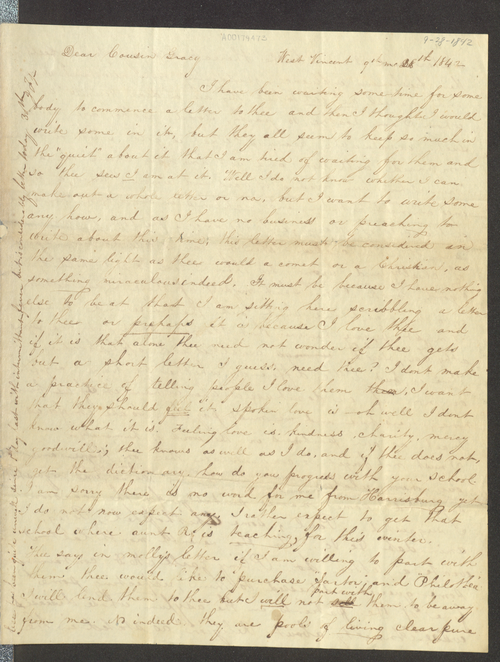 9-28-1842
Dear Cousin Gracy West Vincent 9th mo 28th 1842
I have been waiting some time for some
body to commence a letter to thee and then I thought I would
write some in it, but they all seem to keep so much in
the "quiet" about it that I am tired of waiting for them and
so thee sees I am at it. Well I do not know whether I can
make out a whole letter or no, but I want to write some
any how, and as I have no business or preaching to
write about this time, this letter must be considered in
the same light as thee would a comet or a Christian, as
something miraculous indeed. It must be because I have nothing
else to be at that I am sitting here scribbling a letter
to thee or perhaps it is because I love thee and
if it is that alone thee need not wonder if thee gets
but a short letter I guess. need thee? I dont make
a practice of telling people I love them I want
that they should feel it spoken love is – oh well I dont
know what it is. Feeling love is kindness, charity, mercy
goodwill; thee knows as well as I do, and if thee does not,
get the dictionary. how do you progress with your school
I am sorry there is no word for me from Harrisburg yet
I do not now expect any. I rather expect to get that
school where aunt R. is teaching for this winter.
Thee says in molly's letter if I am willing to part with
them thee would like to purchase Factor, and Philothea
I will lend them to thee but will not part with them to be away
from me. No indeed. they are pools of living clear pure